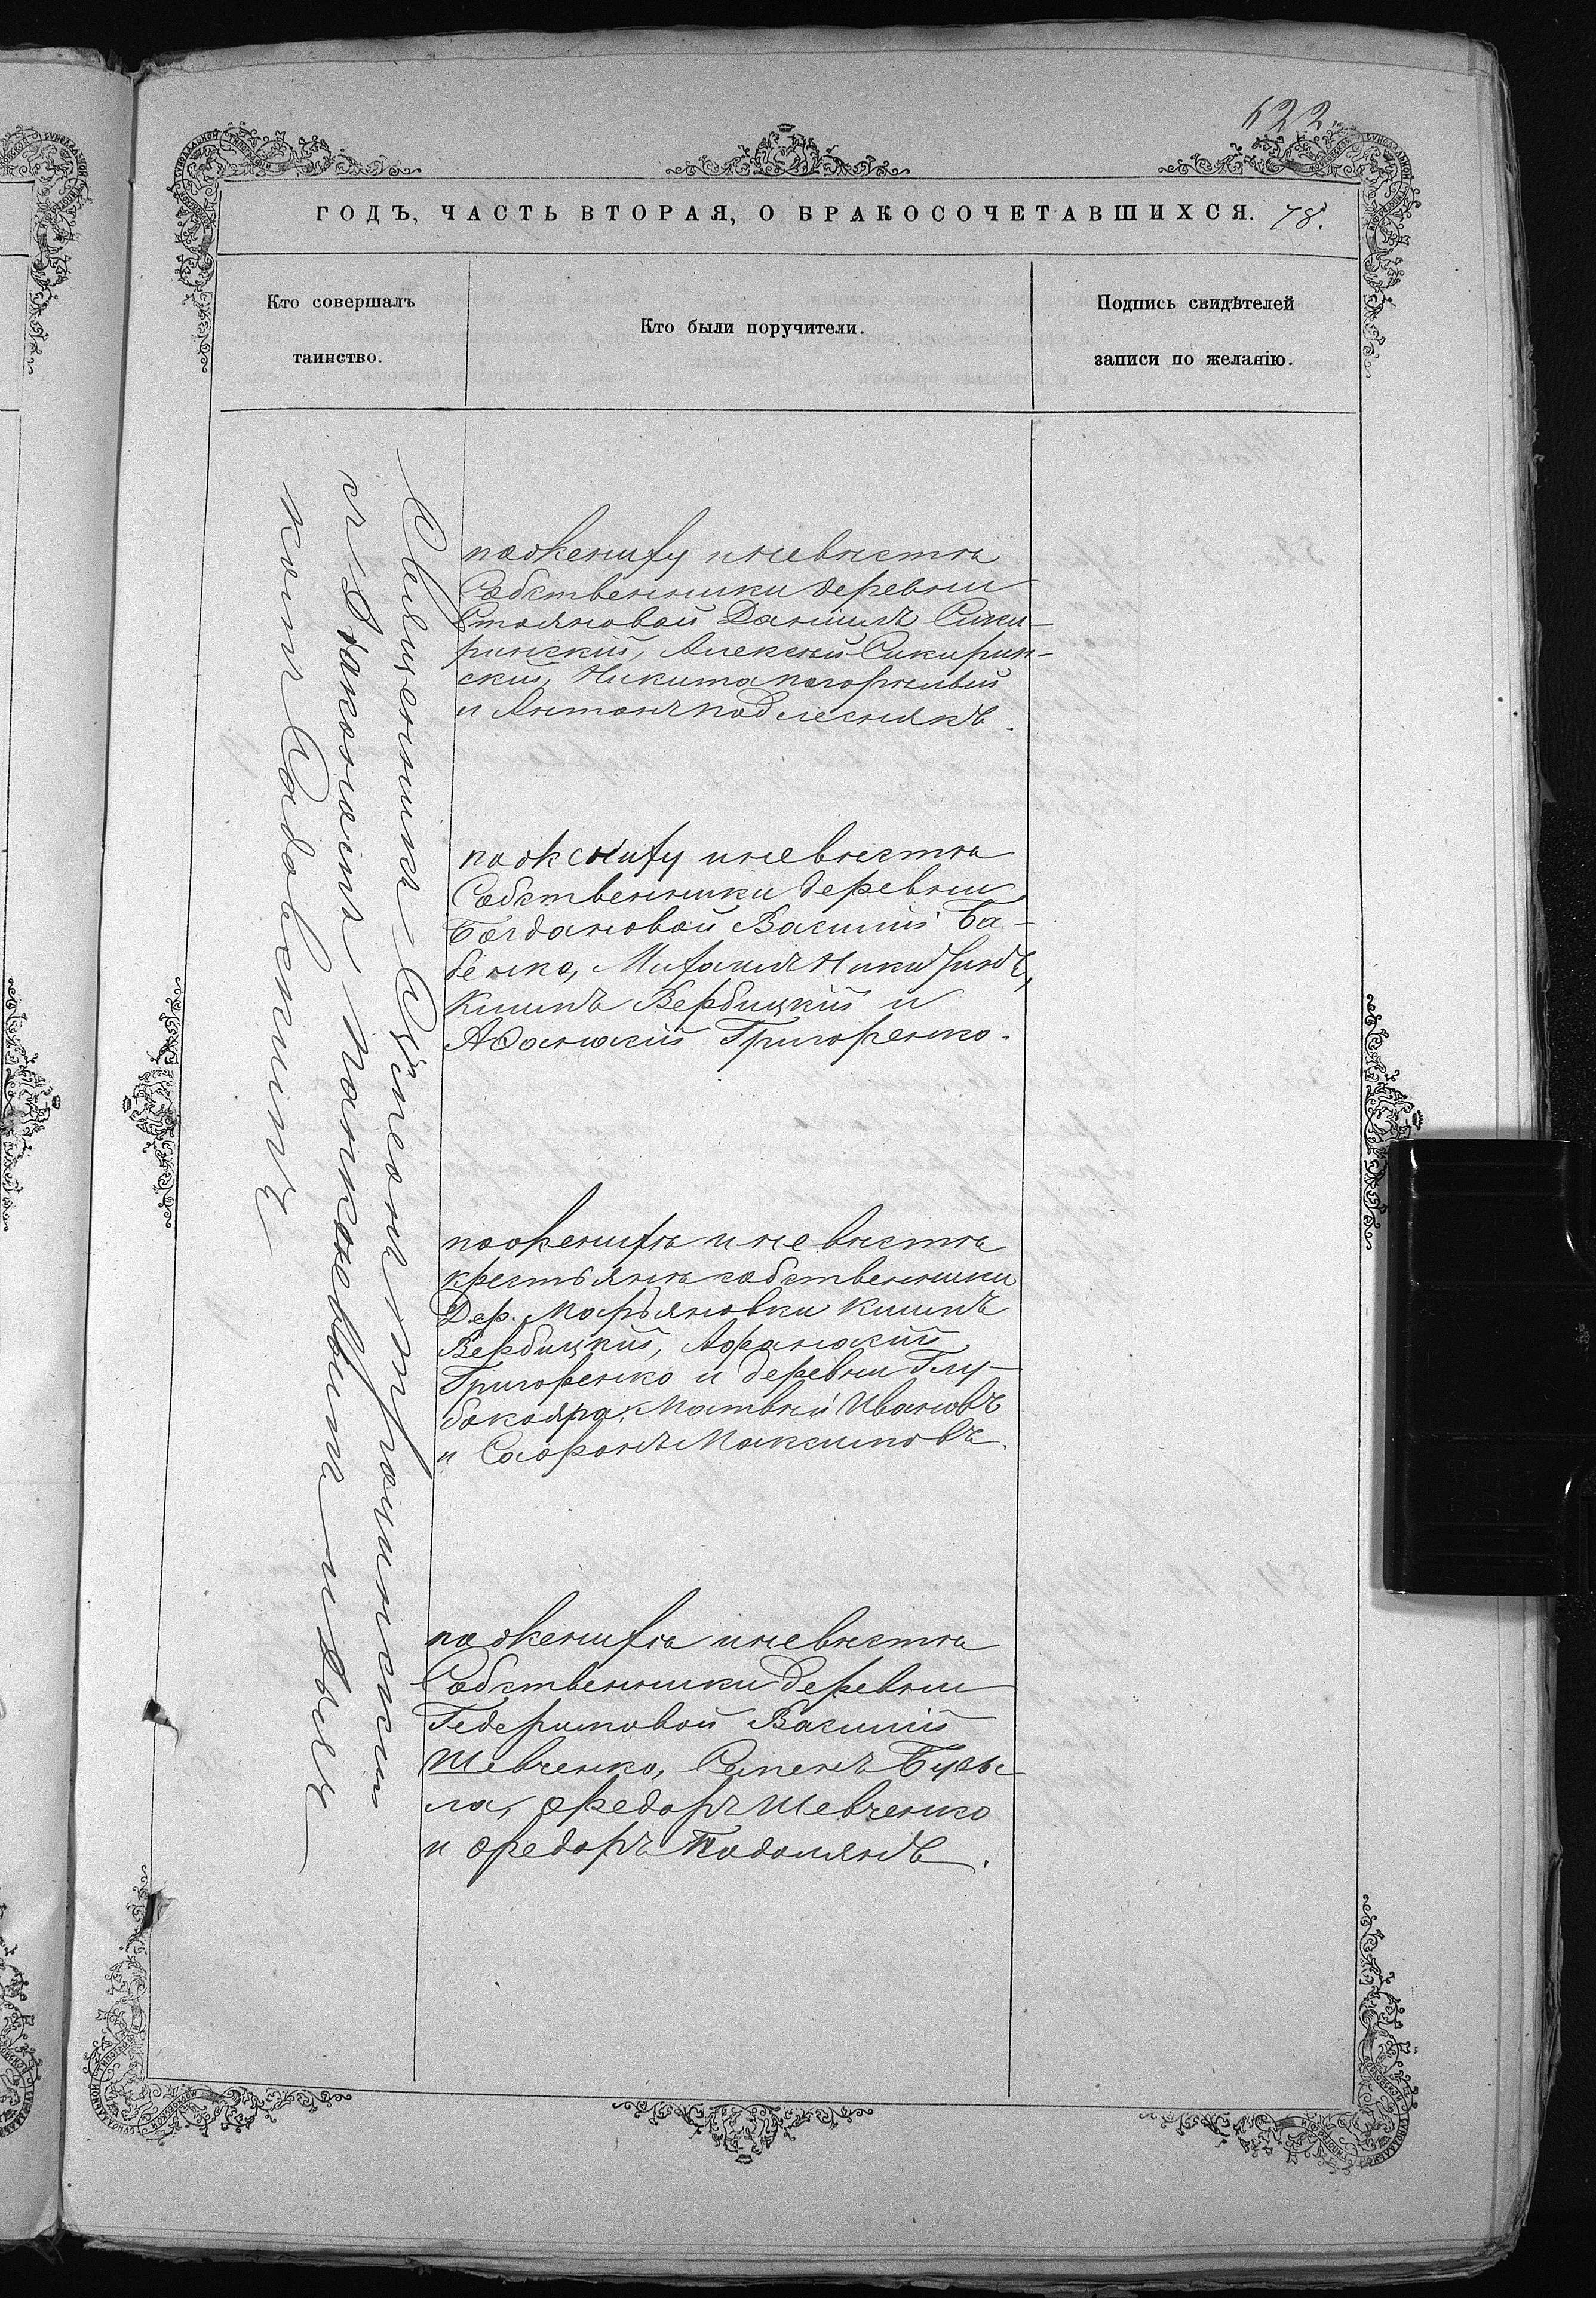 622
ГОДЪ, ЧАСТЬ ВТОРАЯ, О БРАКОСОЧЕТАВШИХСЯ. 78.
Кто совершалъ
таинство.
Кто были поручители.
Подпись свидѣтелей
записи по желанію.
Священникъ Симеонъ
съ Діакономъ и Дья
комъ
по жениху и невѣстѣ
Собственники деревни
Стояновой Даніилъ Сики-
ринскій, Алексѣй Сикирин-
скій, Никита Погорѣлый
и Антонъ Подлеснякъ.
по жениху и невѣстѣ
Собственники деревни
Богдановой Василій Ба-
бенко, Михаилъ
Климъ Вербицкій и
Афанасій Григоренко.
по женихѣ и невѣстѣ
крестьяне собственники
Дер. Марьяновки Климъ
Вербицкій, Афанасій
Григоренко и деревни Глу-
бокояра, Матвѣй Ивановъ
и Сафонъ Максимовъ.
по женихѣ и невѣстѣ
Собственники деревни
Гедеримовой Василій
Шевченко, Семенъ
ла, Федоръ Шевченко
и Федоръ Подолянъ.